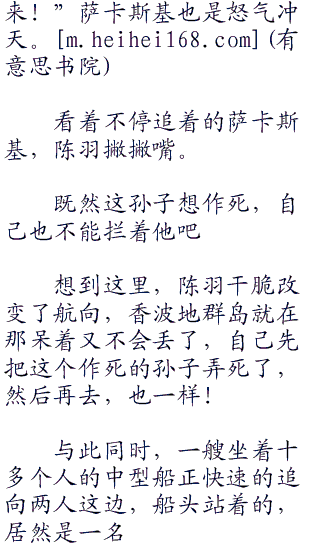 来！”萨卡斯基也是怒气冲
天。[m.heihei168.com](有
意思书院)
看着不停追着的萨卡斯
基，陈羽撇撇嘴。
既然这孙子想作死，自
己也不能拦着他吧
想到这里，陈羽干脆改
变了航向，香波地群岛就在
那呆着又不会丢了，自己先
把这个作死的孙子弄死了，
然后再去，也一样！
与此同时，一艘坐着十
多个人的中型船正快速的追
向两人这边，船头站着的，
居然是一名